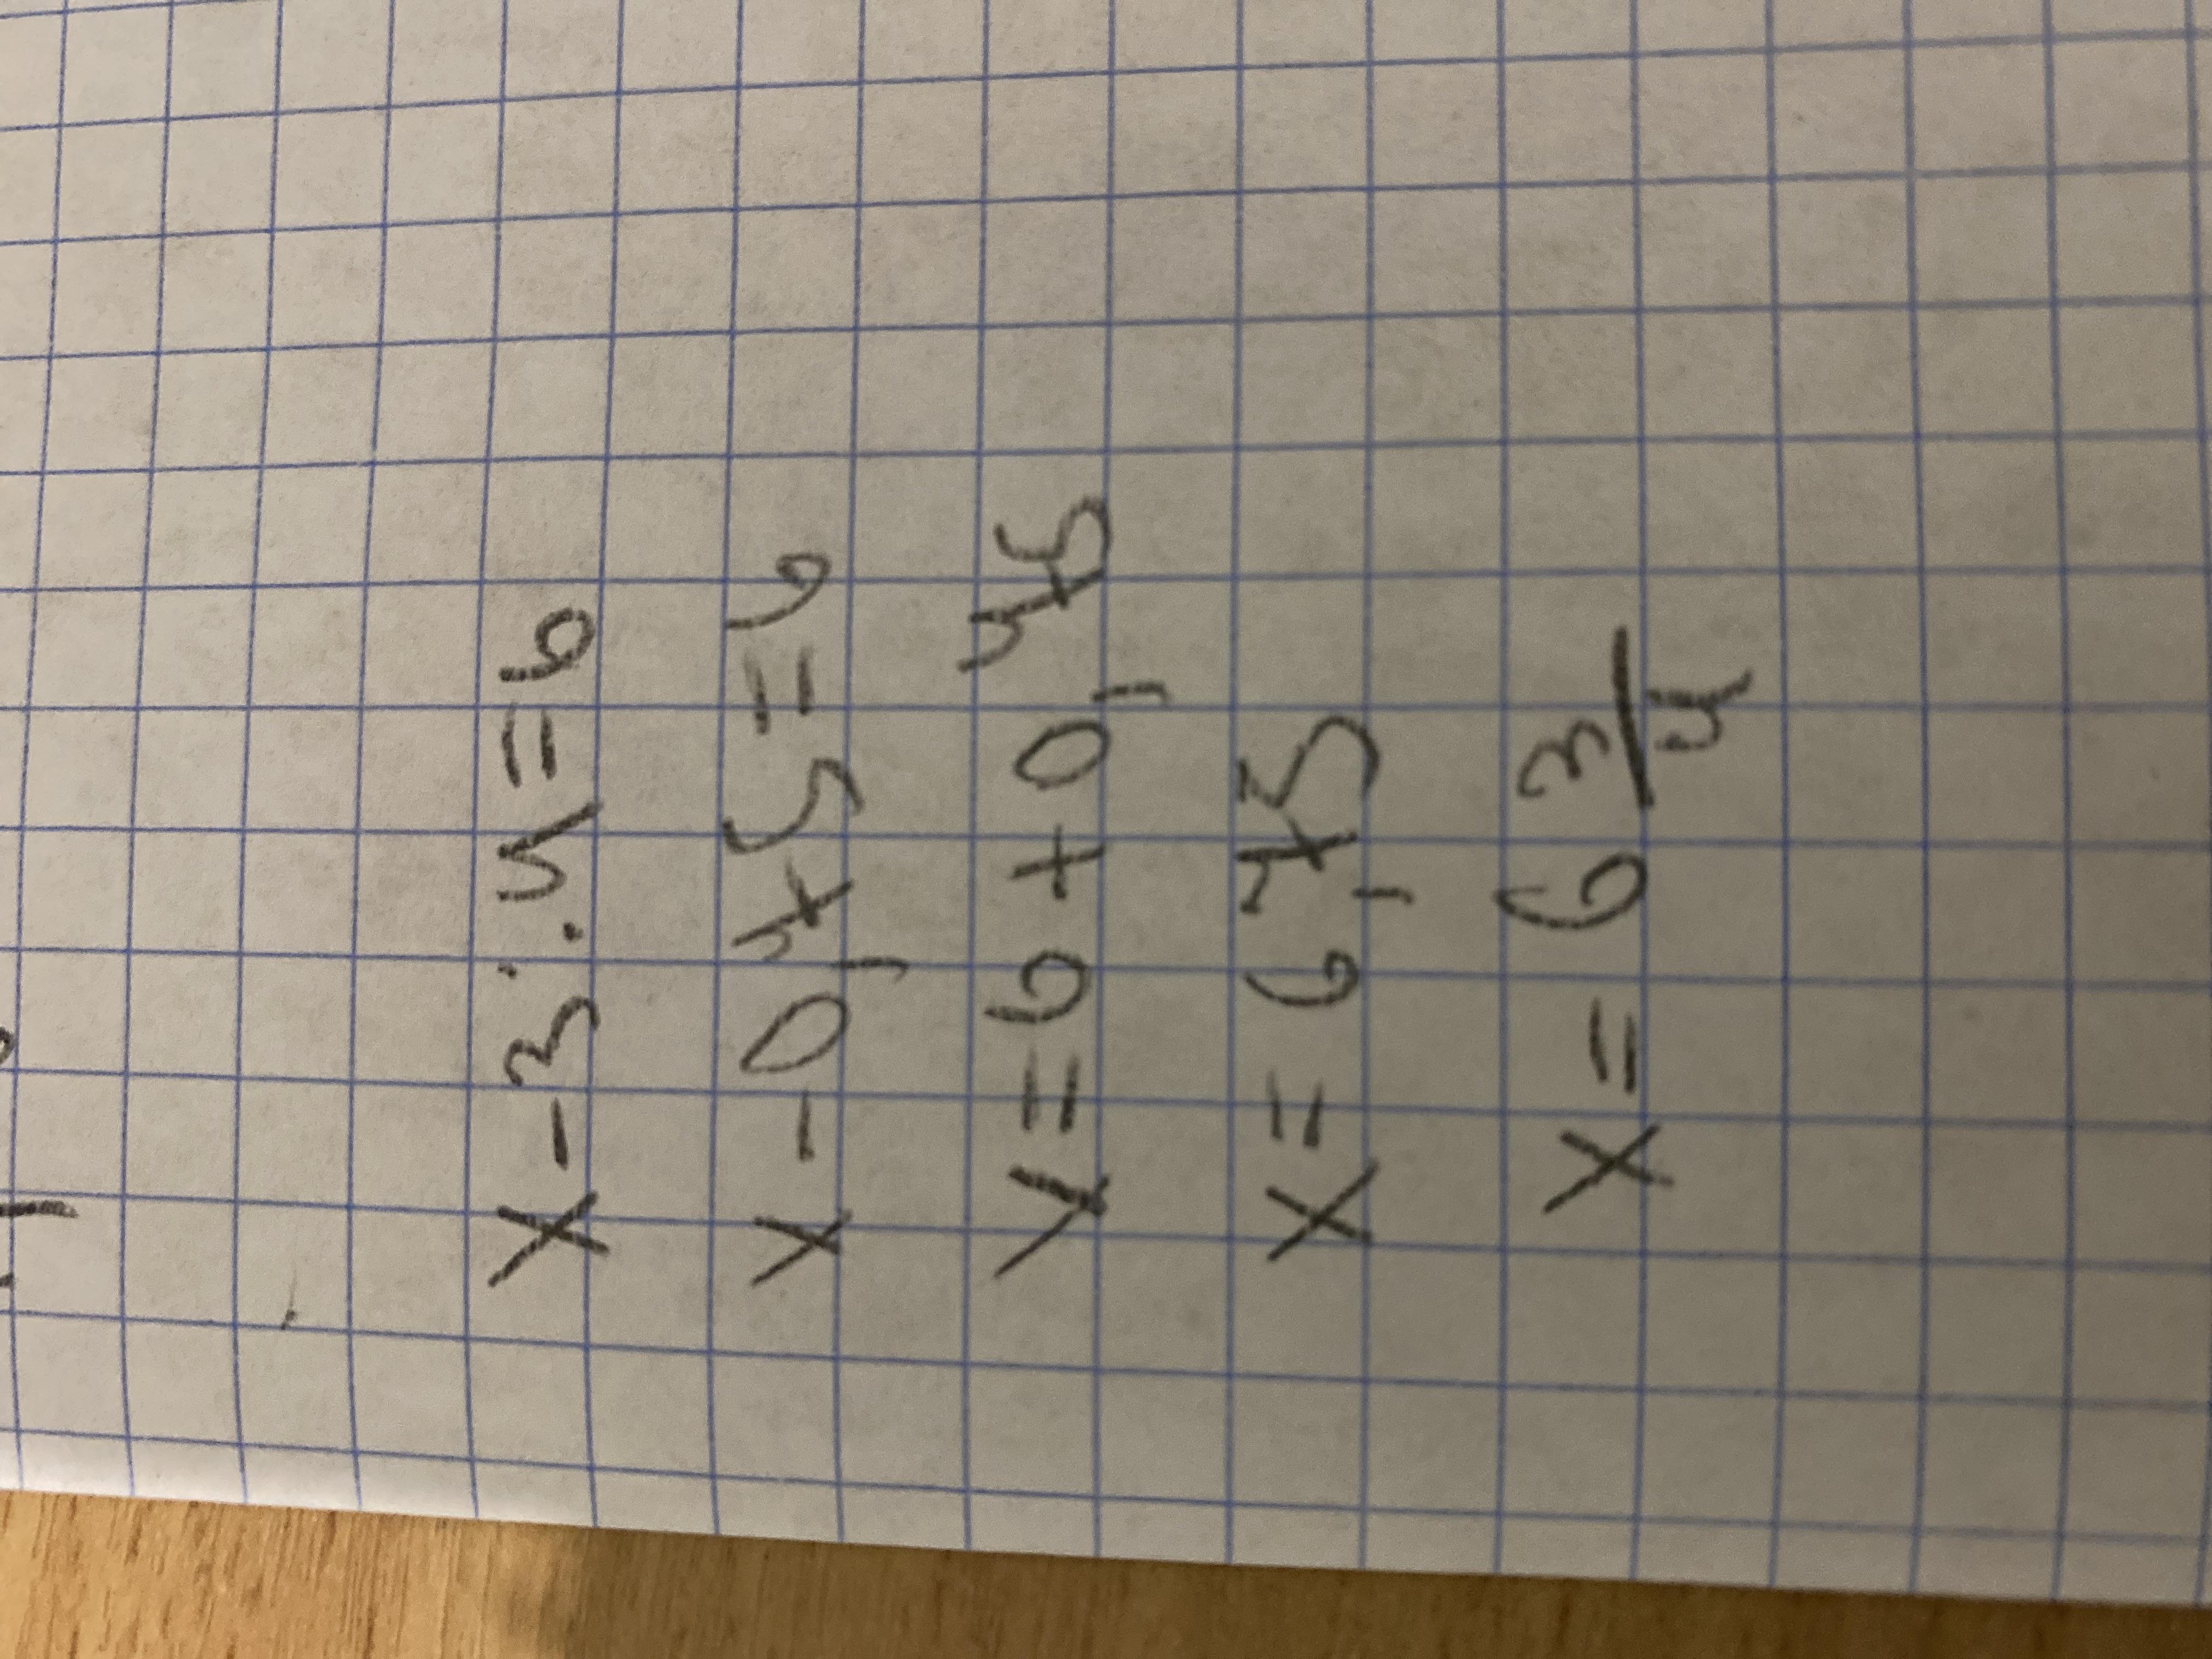 x - 3 : 4 = 6
x - 0,75 = 6
x = 6 + 0,75
x = 6,75
x = 6 3/4